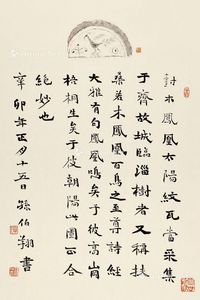 木鳳凰太陽紋瓦當采集
于齊故城臨淄樹者又稱扶
桑若木鳳凰百鳥之至尊詩經
大雅有句鳳凰鳴矣于彼高崗
梧桐生矣于彼朝陽此圖正合
絕妙也
辛卯年正月十五日孫伯翔書